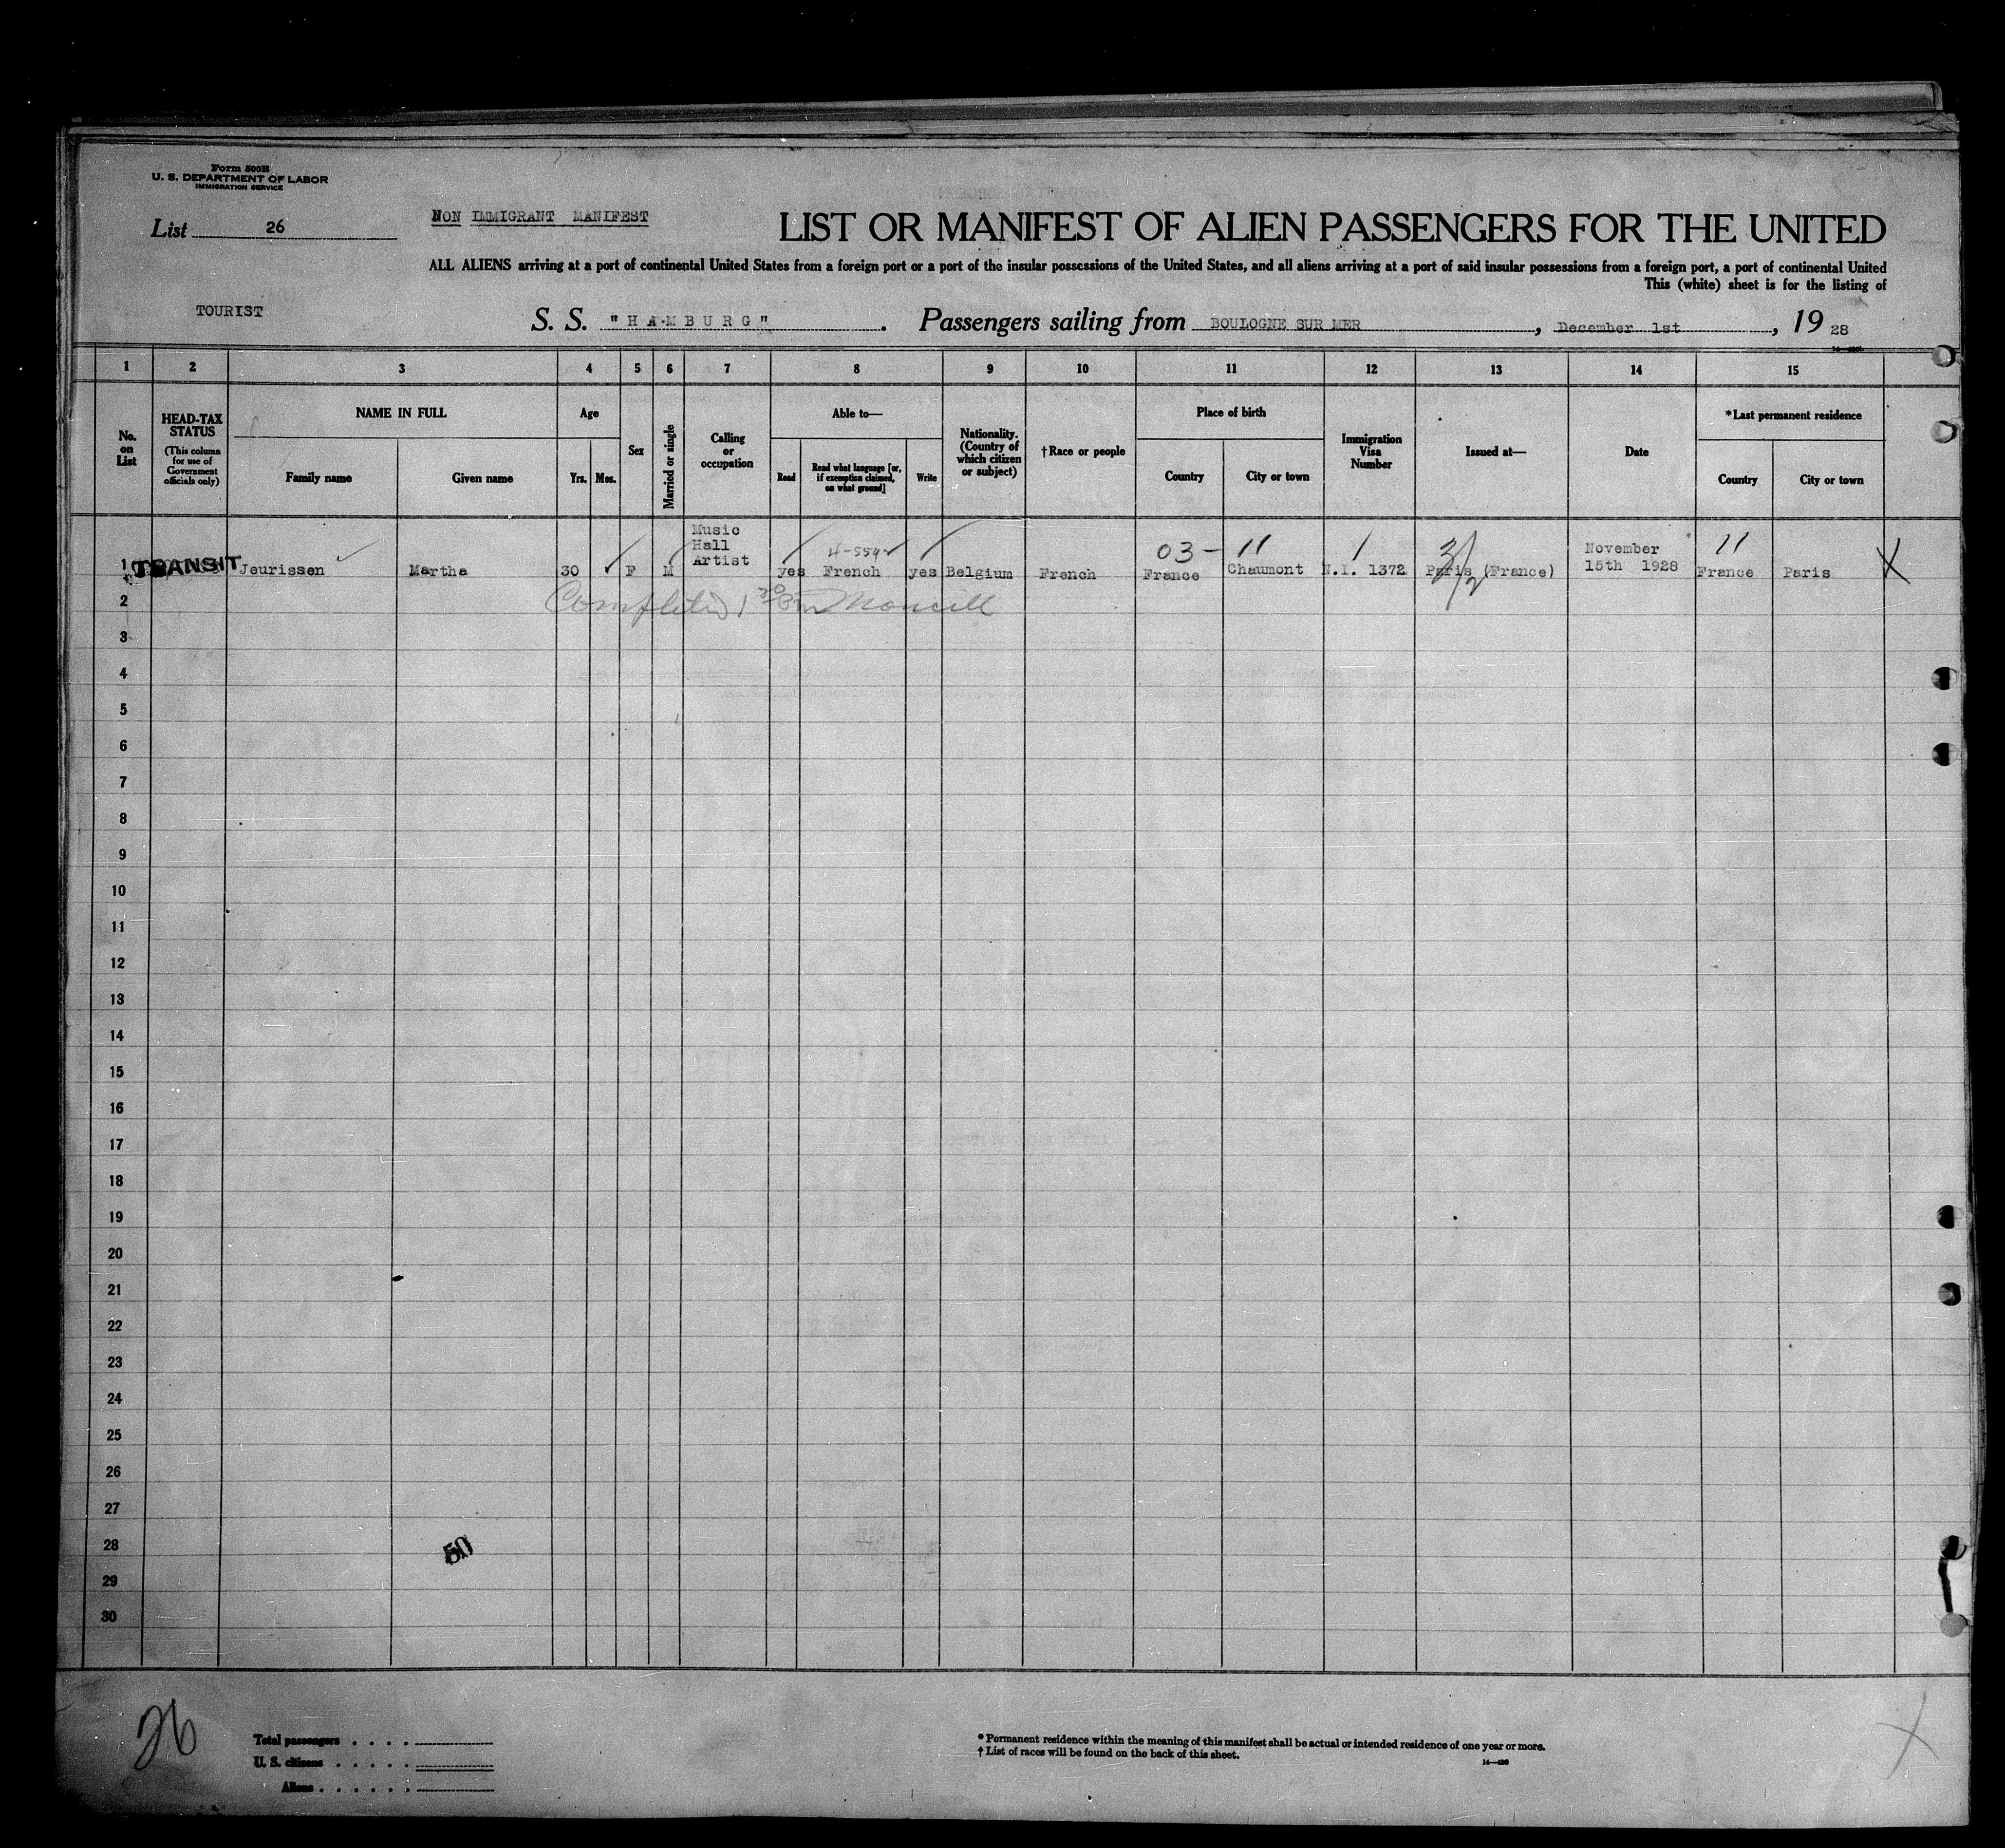 Form 500B
U. S. DEPARTMENT OF LABOR
IMMIGRATION SERVICE
List 26
NON IMMIGRANT MANIFEST
LIST OR MANIFEST OF ALIEN PASSENGERS FOR THE UNITED
ALL ALIENS arriving at a port of continental United States from a foreign port or a port of the insular possessions of the United States, and all aliens arriving at a port of said insular possessions from a foreign port, a port of continental United
This (white) sheet is for the listing of
TOURIST
S. S. "HAMBURG". Passengers sailing from BOULOGNE SUR MER, December 1st, 1928
1 2 3 4 5 6 7 8 9 10 11 12 13 14 15
No. on List
HEAD-TAX STATUS
(This column for use of Government officials only)
NAME IN FULL
Family name Given name
Age
Yrs. Mos.
Sex
Married or single
Calling or occupation
Able to—
Read Read what language [or, if exemption claimed, on what ground] Write
Nationality. (Country of which citizen or subject)
†Race or people
Place of birth
Country City or town
Immigration Visa Number
Issued at—
Date
*Last permanent residence
Country City or town
1 TRANSIT Jeurissen Martha 30 F M Music Hall Artist yes French yes Belgium French France Chaumont N.I. 1372 Paris (France) November 15th 1928 France Paris X
4-559
03- 11
11
Completed
2
3
4
5
6
7
8
9
10
11
12
13
14
15
16
17
18
19
20
21
22
23
24
25
26
27
28
29
30
50
26
Total passengers
U. S. citizens
Aliens
* Permanent residence within the meaning of this manifest shall be actual or intended residence of one year or more.
† List of races will be found on the back of this sheet.
X